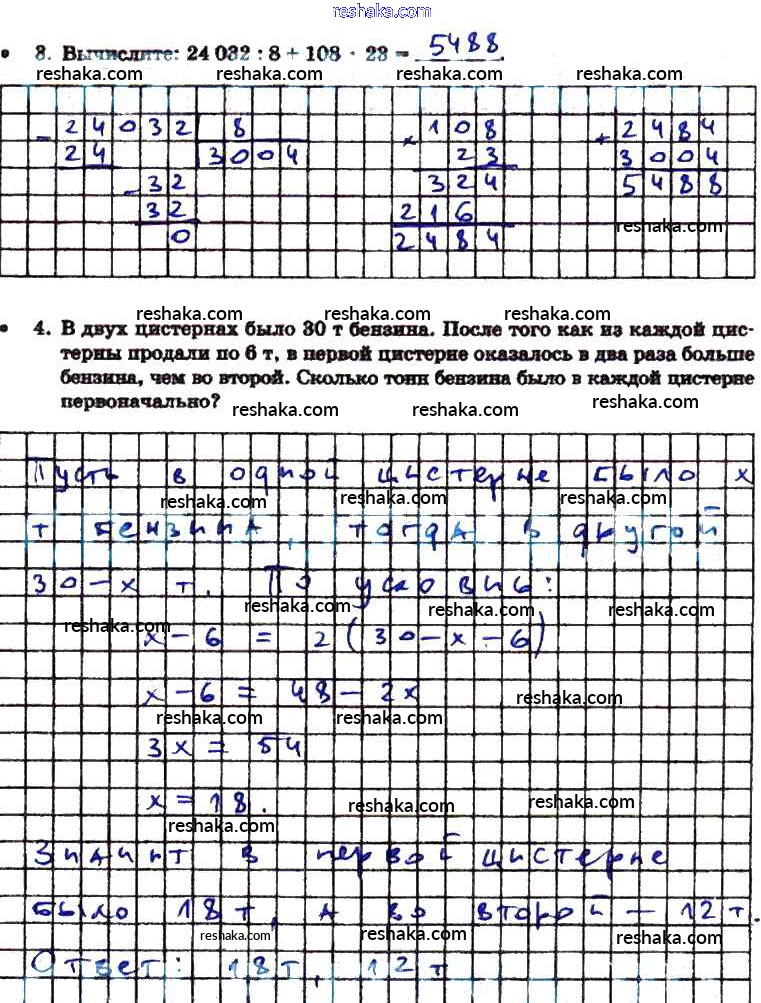 reshaka.com
reshaka.com
3. Вычислите: 24 032 : 8 + 108 · 23 = 5488.
reshaka.com reshaka.com reshaka.com reshaka.com
- 24032 8 × 108 + 2484
24 3004 23 3004
- 32 324 5488
32 216 reshaka.com
0 2484
reshaka.com reshaka.com reshaka.com reshaka.com
4. В двух цистернах было 30 т бензина. После того как из каждой цис-
терны продали по 6 т, в первой цистерне оказалось в два раза больше
бензина, чем во второй. Сколько тонн бензина было в каждой цистерне
первоначально?
reshaka.com reshaka.com reshaka.com
Пусть в одной цистерне было x
reshaka.com reshaka.com reshaka.com
т бензина, тогда в другой
30-x т. По условию:
reshaka.com reshaka.com reshaka.com
reshaka.com
x-6 = 2(30-x-6)
x-6 = 48-2x
reshaka.com
reshaka.com reshaka.com
3x = 54
x = 18.
reshaka.com reshaka.com
reshaka.com
Значит в первой цистерне
было 18 т, а во второй - 12 т.
reshaka.com reshaka.com reshaka.com
Ответ: 18т, 12 т